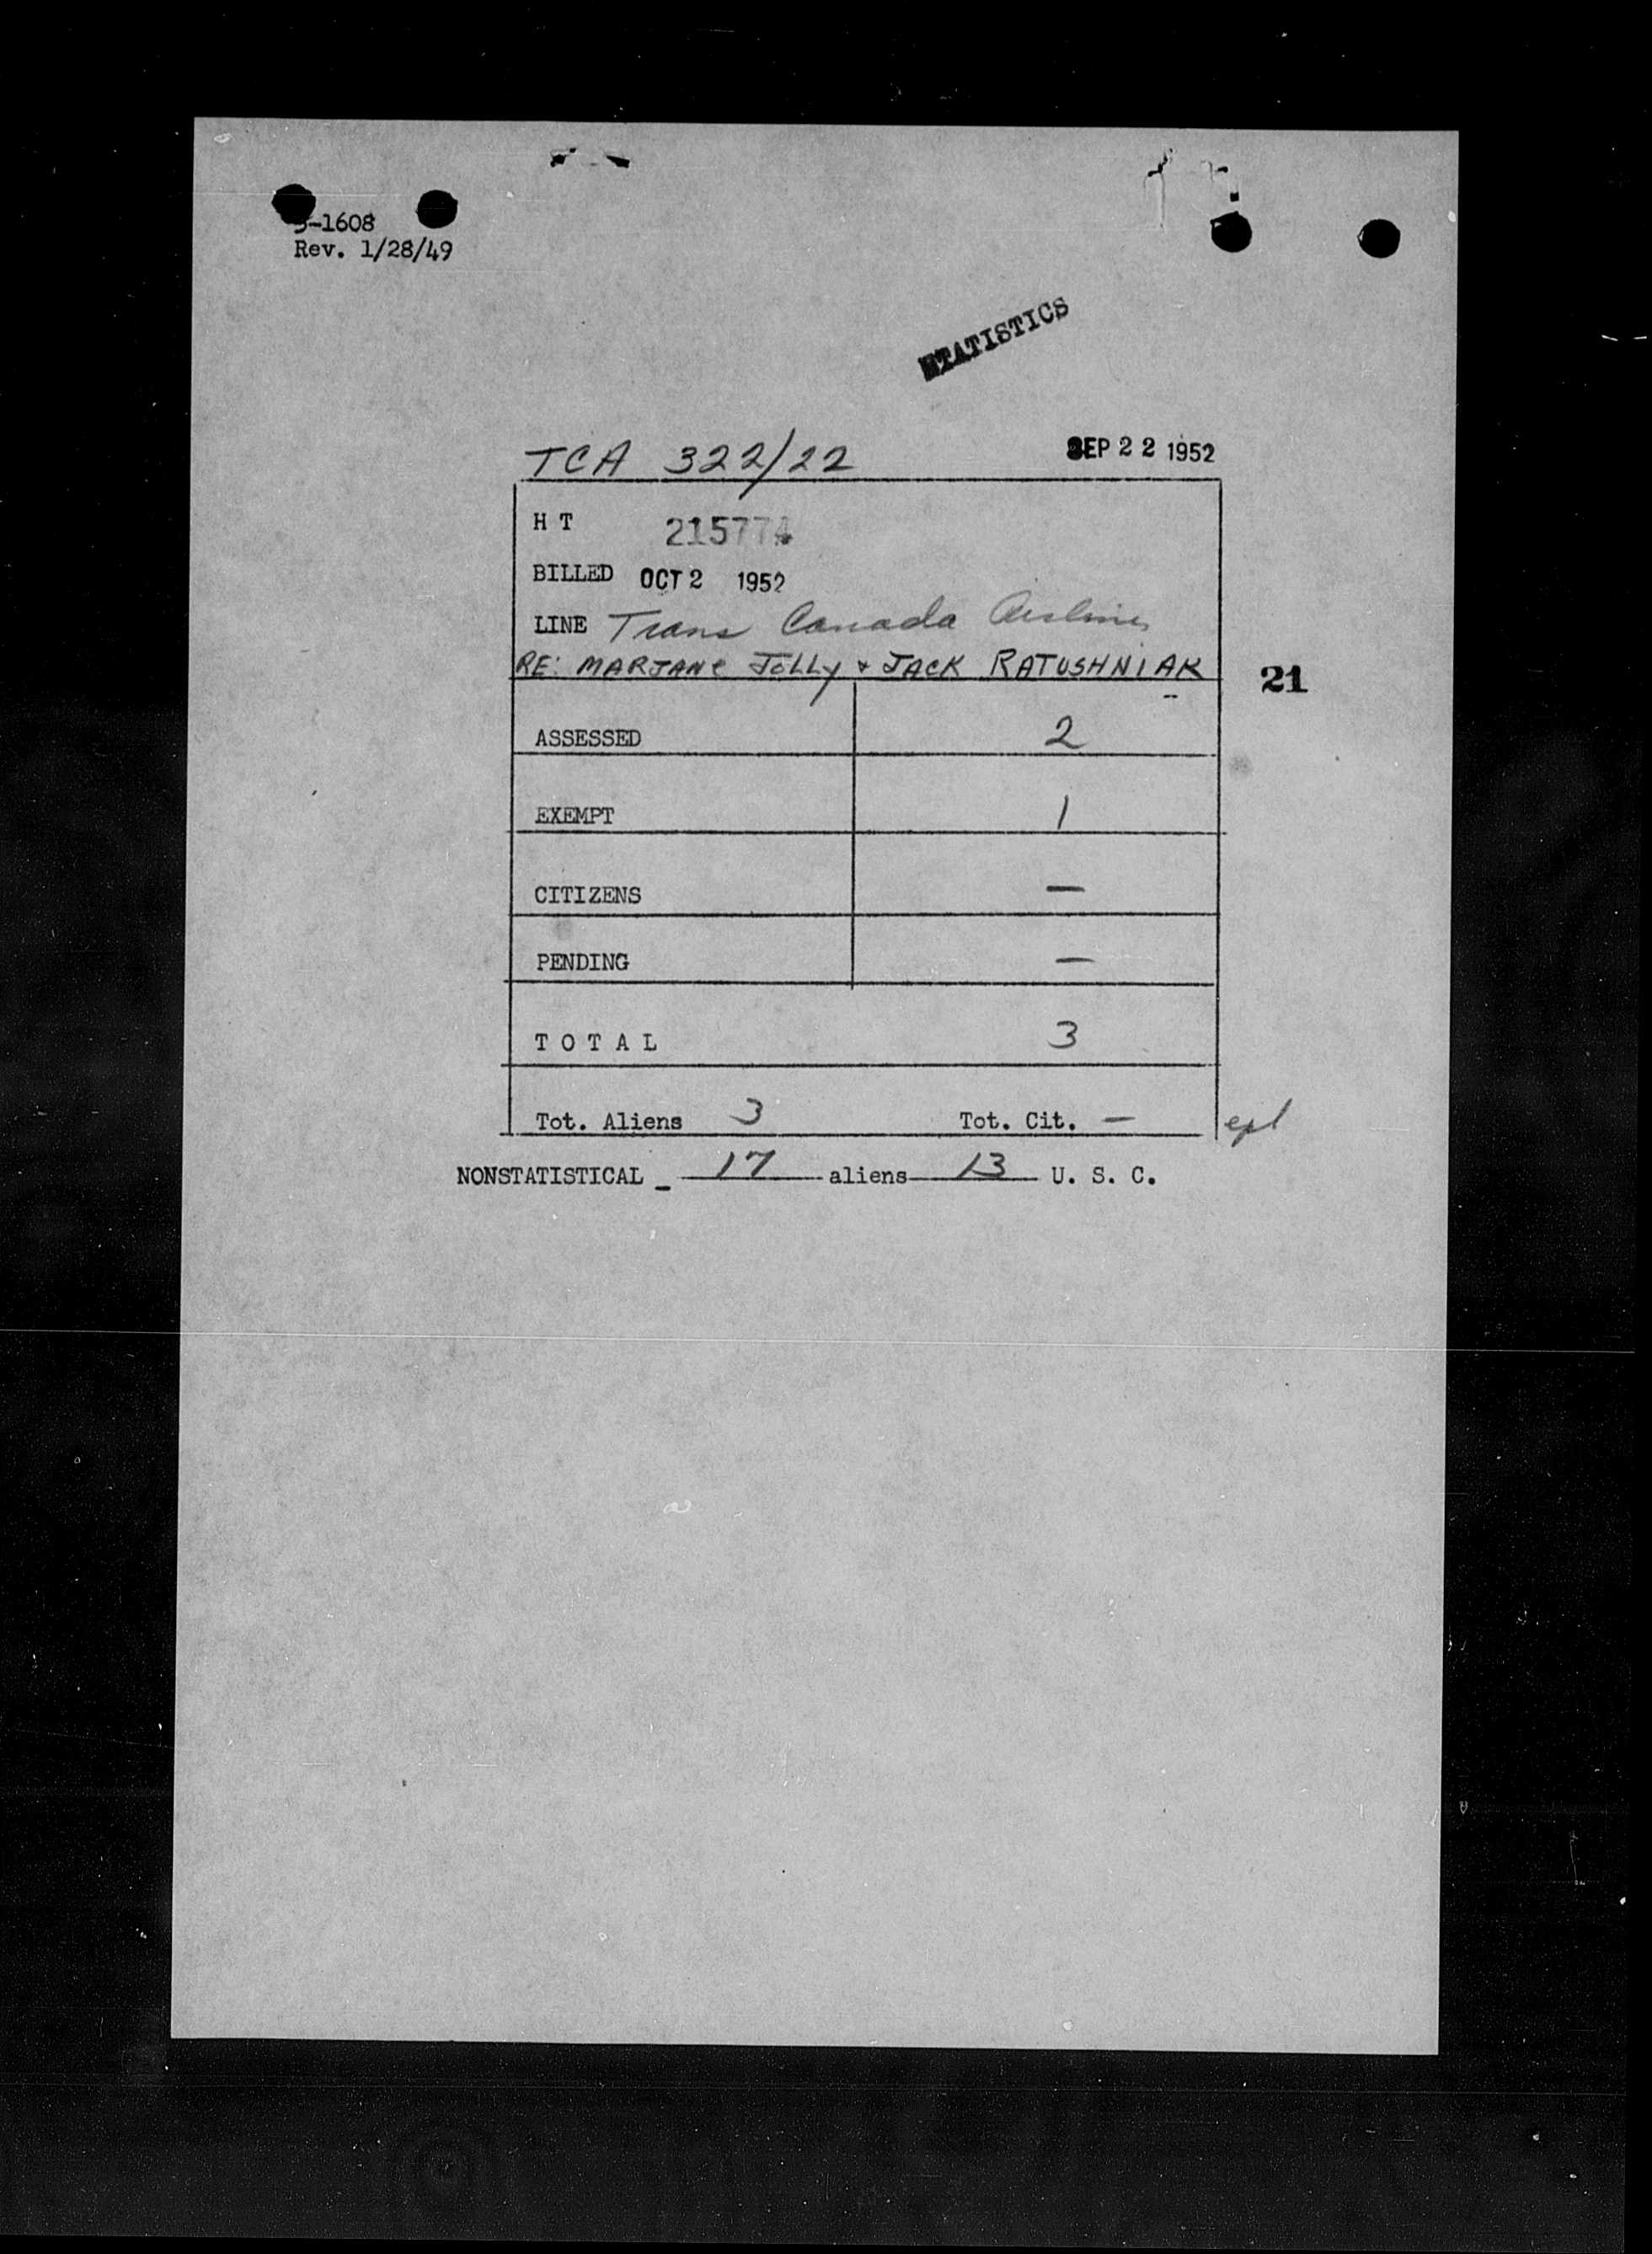 -1608
Rev. 1/28/49
STATISTICS
TCA 322/22 SEP 22 1952
H T 215774
BILLED OCT 2 1952
LINE Trans Canada Airlines
RE: MARJANE JOLLY & JACK RATUSHNIAK
21
ASSESSED 2
EXEMPT 1
CITIZENS —
PENDING —
T O T A L 3
Tot. Aliens 3 Tot. Cit. —
NONSTATISTICAL - 17 aliens 13 U. S. C.